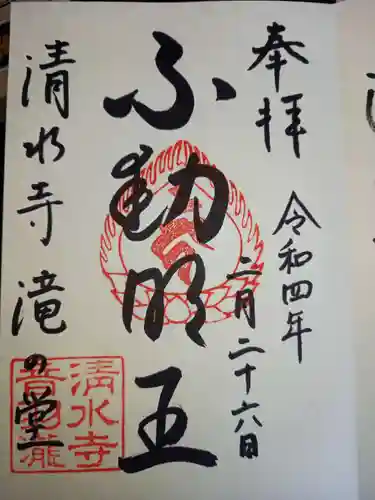 奉拝
令和四年
二月二十六日
不動明王
清水寺 滝の堂
清水寺
音羽瀧